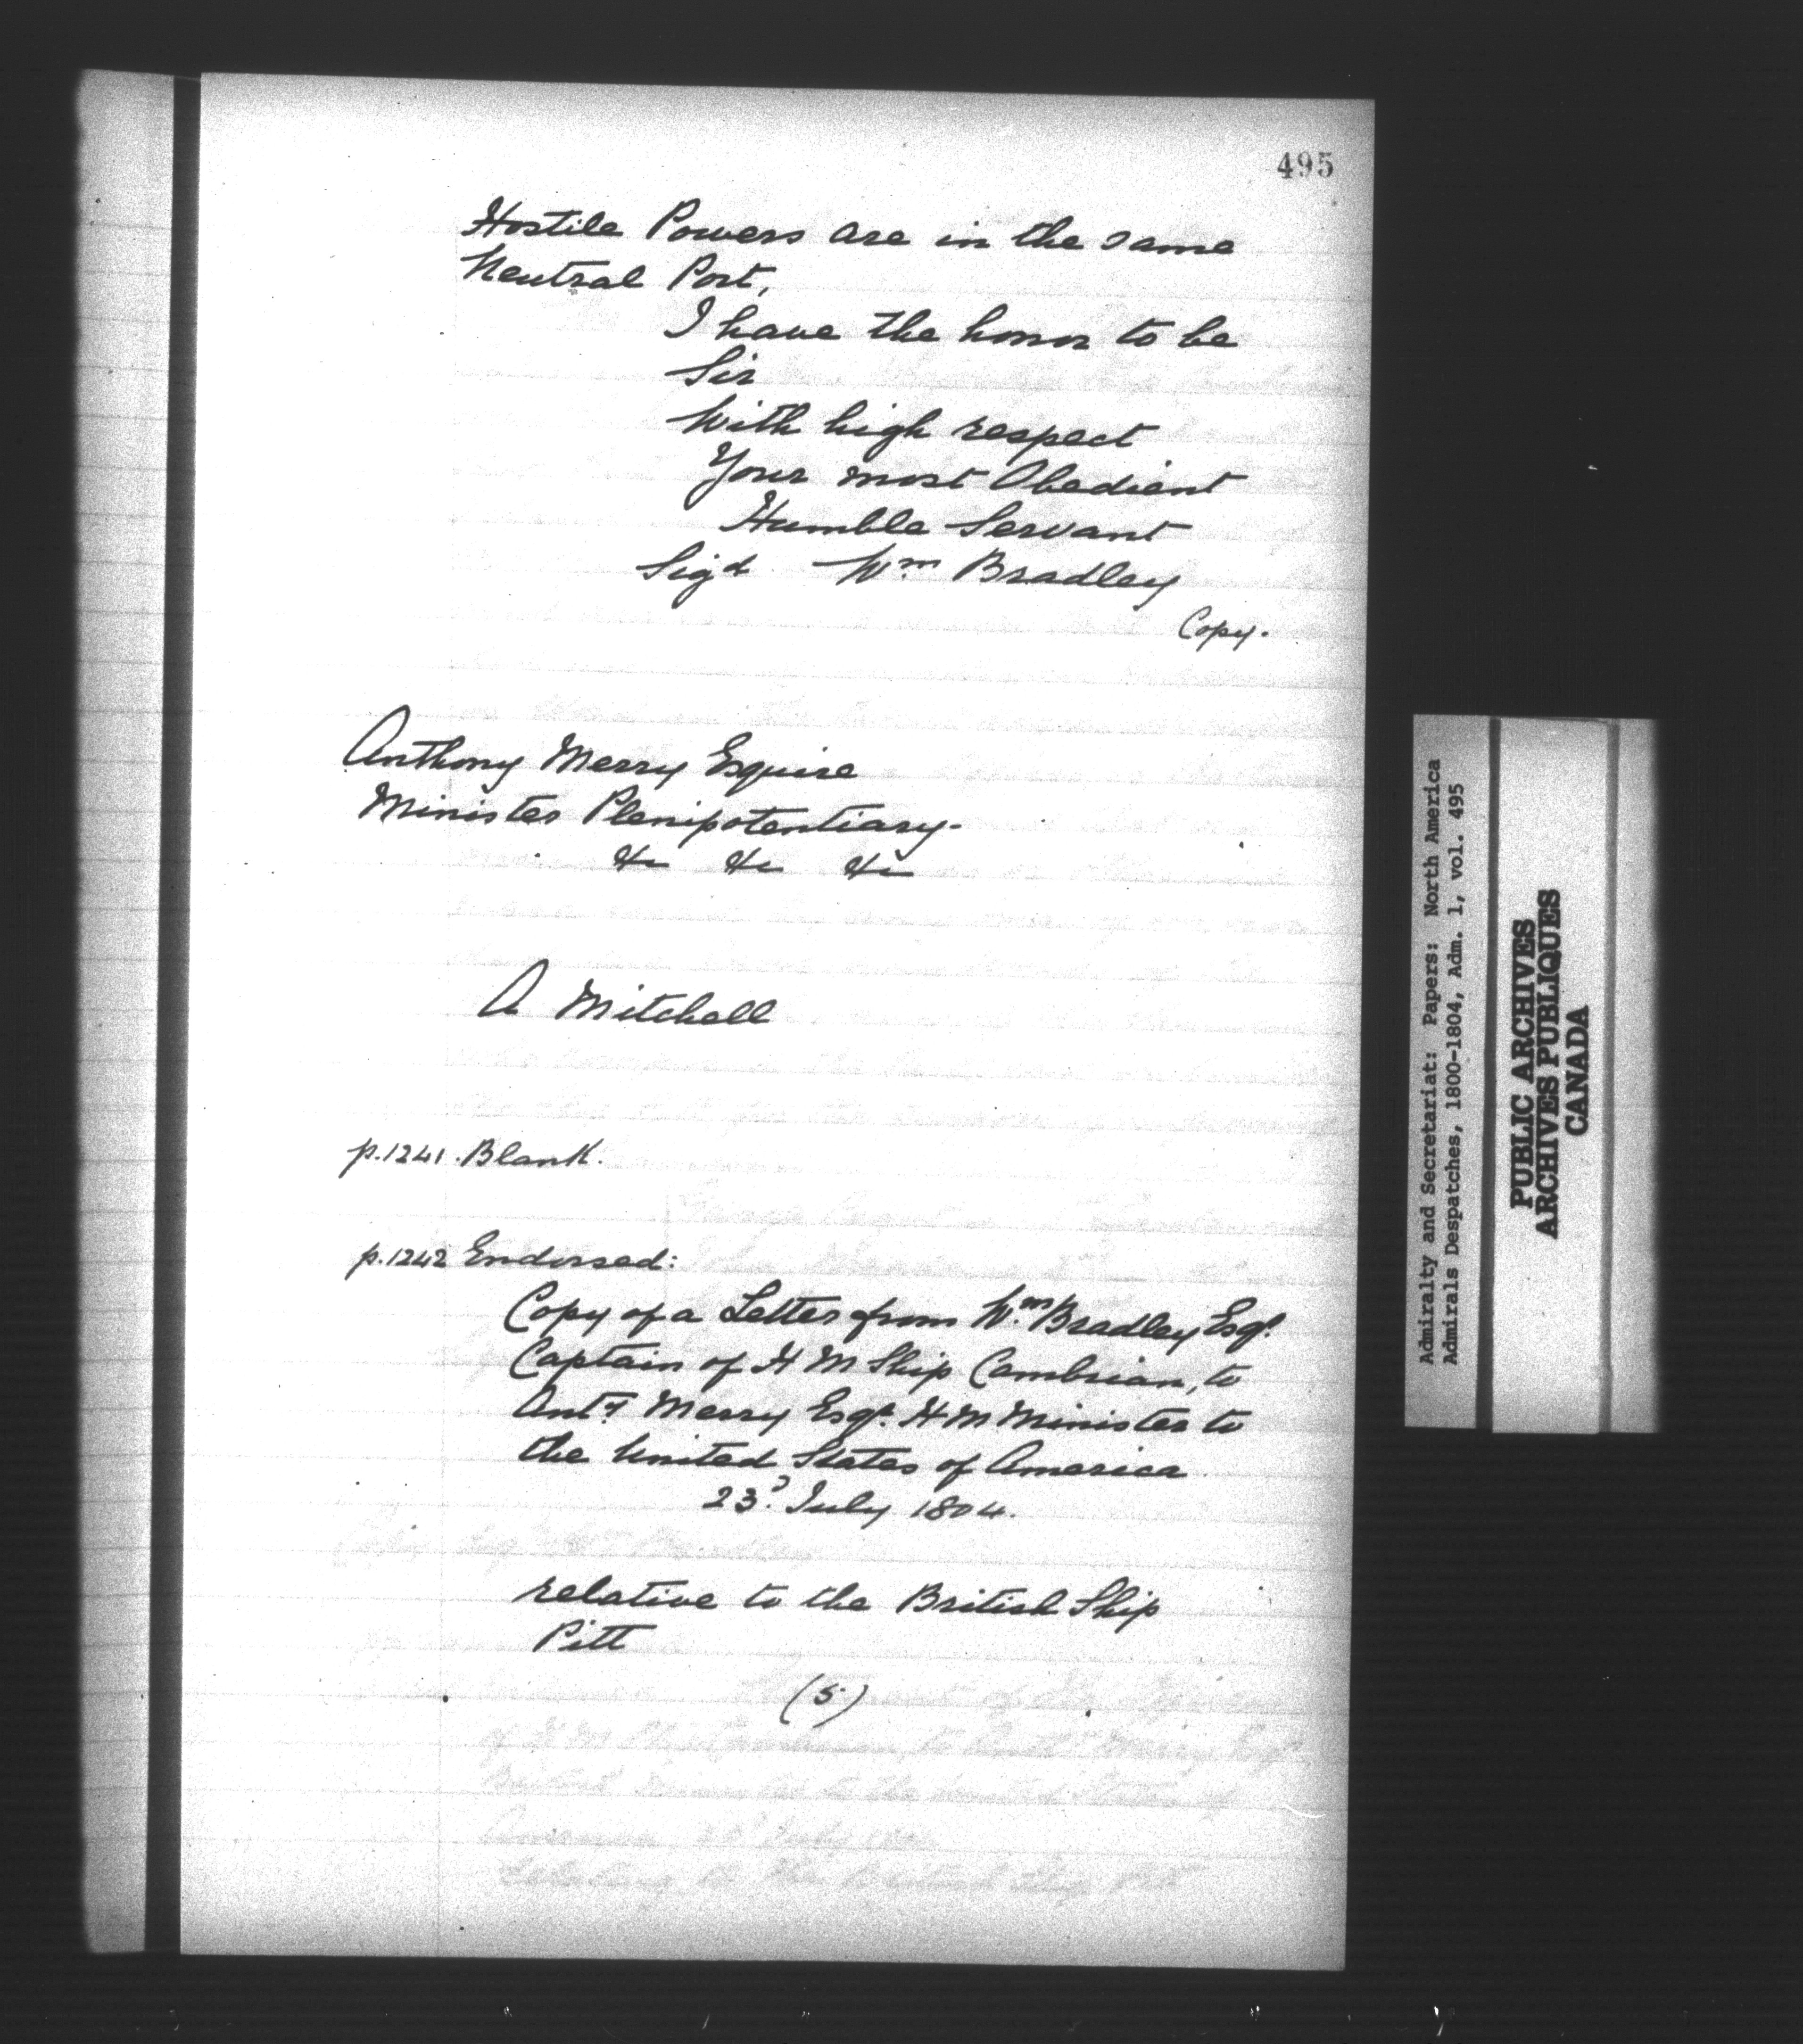 495
Hostile Powers are in the same
Neutral Port,
I have the honor to be
Sir
With high respect
Your most Obedient
Humble Servant
Sigd Wm. Bradley
Copy.
Anthony Merry Esquire
Minister Plenipotentiary.
&c &c &c
A Mitchell
p.1241. Blank.
p.1242 Endorsed:
Copy of a Letter from Wm. Bradley Esqr.
Captain of H M Ship Cambrian, to
Anty. Merry Esqr. H M Minister to
the United States of America
23d. July 1804.
relative to the British Ship
Pitt
(5)
Admiralty and Secretariat: Papers: North America
Admirals Despatches, 1800-1804, Adm. 1, vol. 495
PUBLIC ARCHIVES
ARCHIVES PUBLIQUES
CANADA